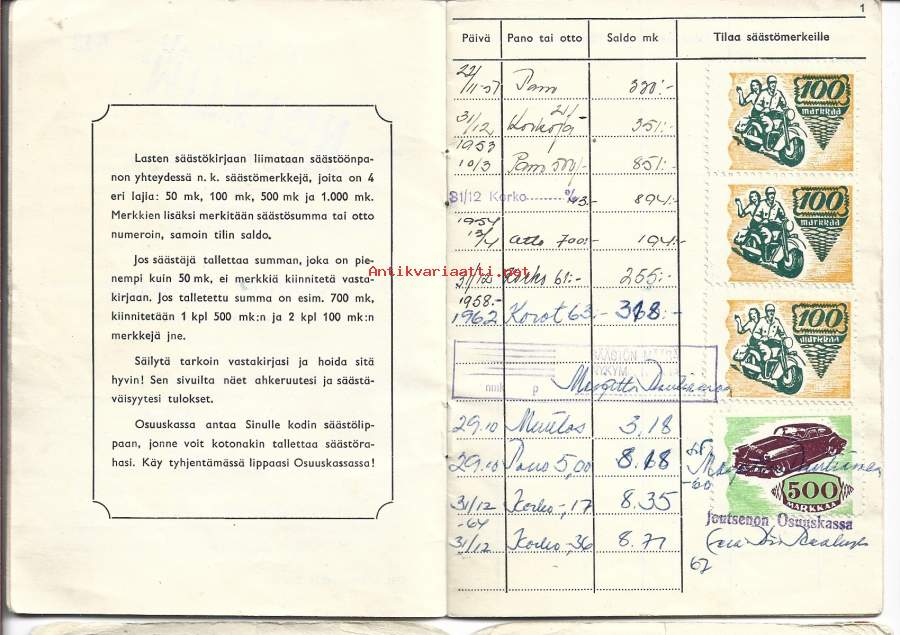 Lasten säästökirjaan liimataan säästöönpa-
non yhteydessä n. k. säästömerkkejä, joita on 4
eri lajia: 50 mk, 100 mk, 500 mk ja 1.000 mk.
Merkkien lisäksi merkitään säästösumma tai otto
numeroin, samoin tilin saldo.
Jos säästäjä tallettaa summan, joka on pie-
nempi kuin 50 mk, ei merkkiä kiinnitetä vasta-
kirjaan. Jos talletettu summa on esim. 700 mk,
kiinnitetään 1 kpl 500 mk:n ja 2 kpl 100 mk:n
merkkejä jne.
Säilytä tarkoin vastakirjasi ja hoida sitä
hyvin! Sen sivuilta näet ahkeruutesi ja säästä-
väisyytesi tulokset.
Osuuskassa antaa Sinulle kodin säästölip-
paan, jonne voit kotonakin tallettaa säästöra-
hasi. Käy tyhjentämässä lippaasi Osuuskassassa!
1
Päivä Pano tai otto Saldo mk Tilaa säästömerkeille
22/11-51 Pano 330:-
31/12 Korko 21/- 351:-
1953
10/3 Pano 500/- 851:-
31/12 Korko 43.- 894:-
1954
13/4 otto 700:- 194:-
31/12 Korko 61:- 255:-
1958-
1962 Korot 63.- 318:-
29.10 Muutos 3.18
29.10 Pano 5,00 8.18
31/12 Korko -,17 8.35
-64
31/12 Korko -,36 8.71
100
markkaa
100
markkaa
100
markkaa
500
MARKKAA
Joutsenon Osuuskassa
62
Antikvariaatti.net